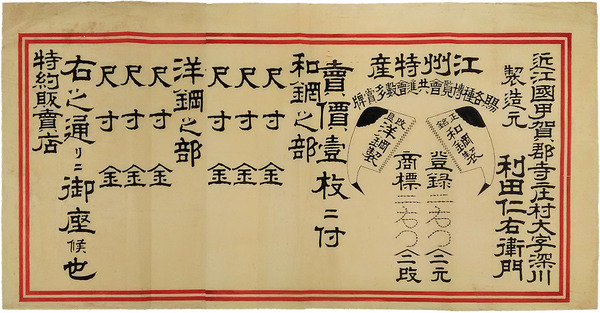 近江國甲賀郡寺庄村大字深川
製造元 利田仁右衛門
江州特産
賜各種博覧會共進會数多賞牌
正銘
和鋼製
洋鋼製
登録
商標
賣價壹枚ニ付
和鋼之部
尺寸 金
尺寸 金
尺寸 金
洋鋼之部
尺寸 金
尺寸 金
尺寸 金
右之通リニ御座候也
特約販賣店